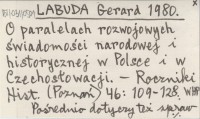 LABUDA Gerard 1980.
O paralelach rozwojowych
świadomości narodowej i
historycznej w Polsce i w
Czechosłowacji. – Roczniki
Hist. (Poznań) 46: 109-128. WHP
Pośrednio dotyczy też spraw